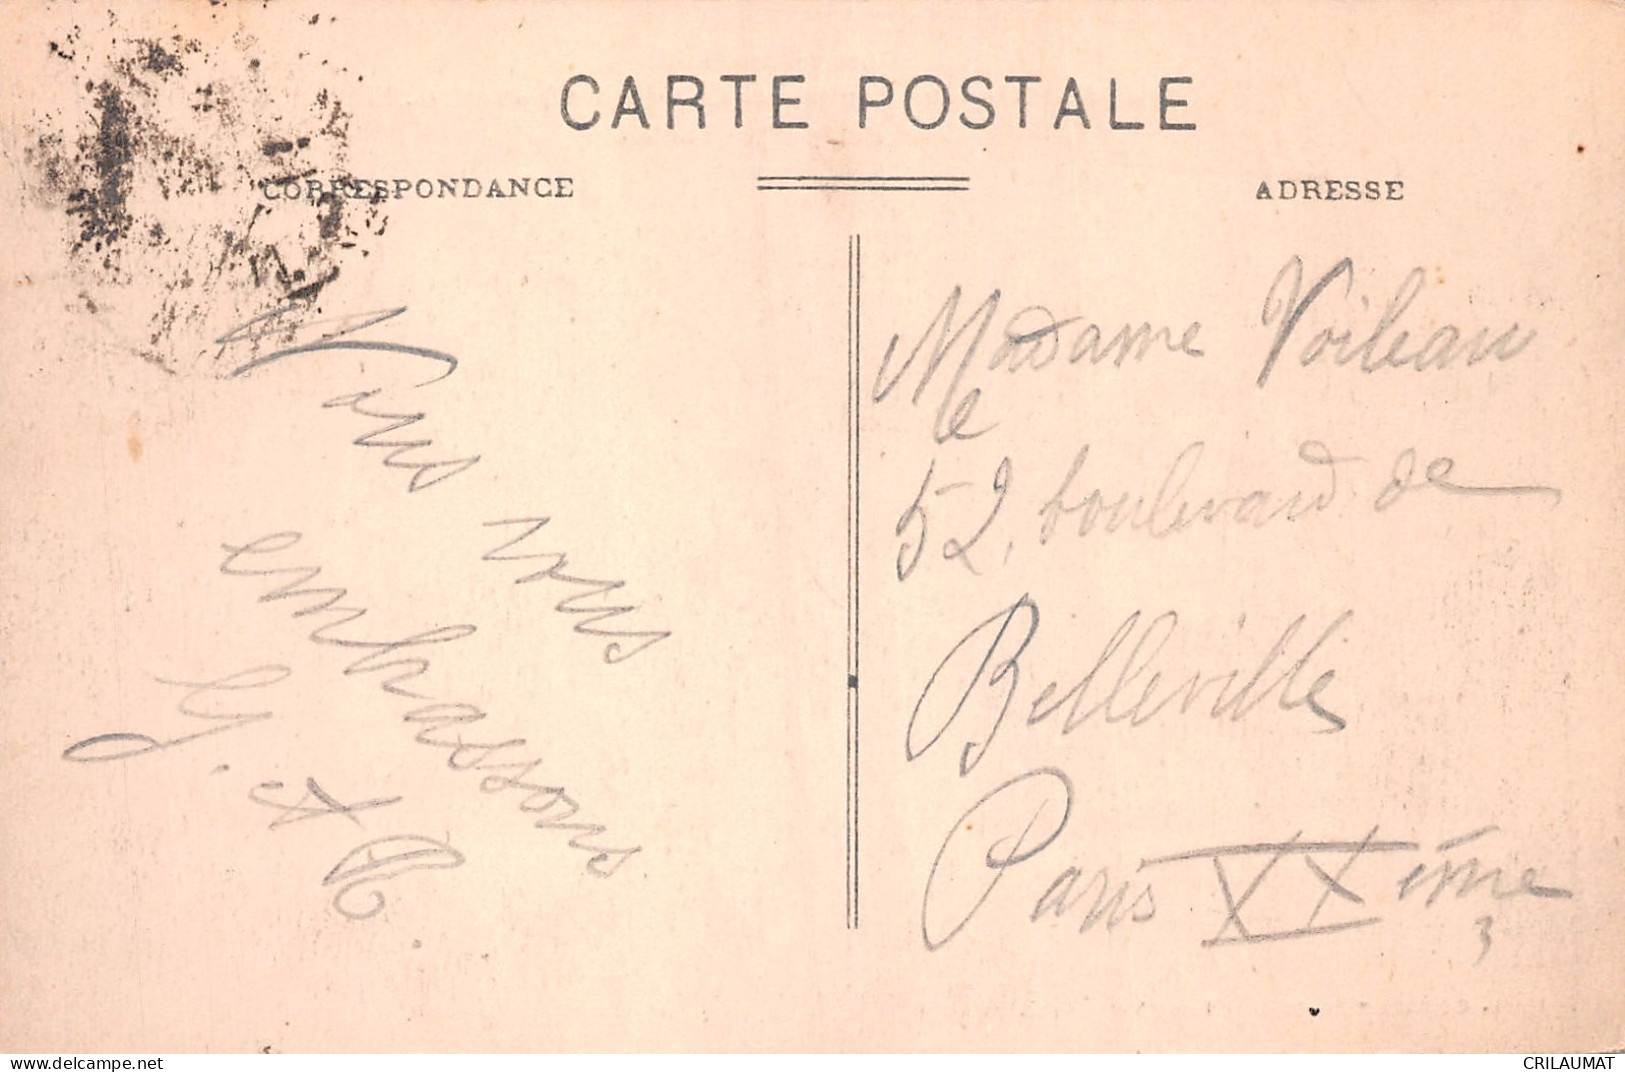 CARTE POSTALE
CORRESPONDANCE
ADRESSE
Nous vous
embrassons
G. A R.
Madame Voileau
52, boulevard de
Belleville
Paris XXème
website: www.delcampe.net
CRILAUMAT